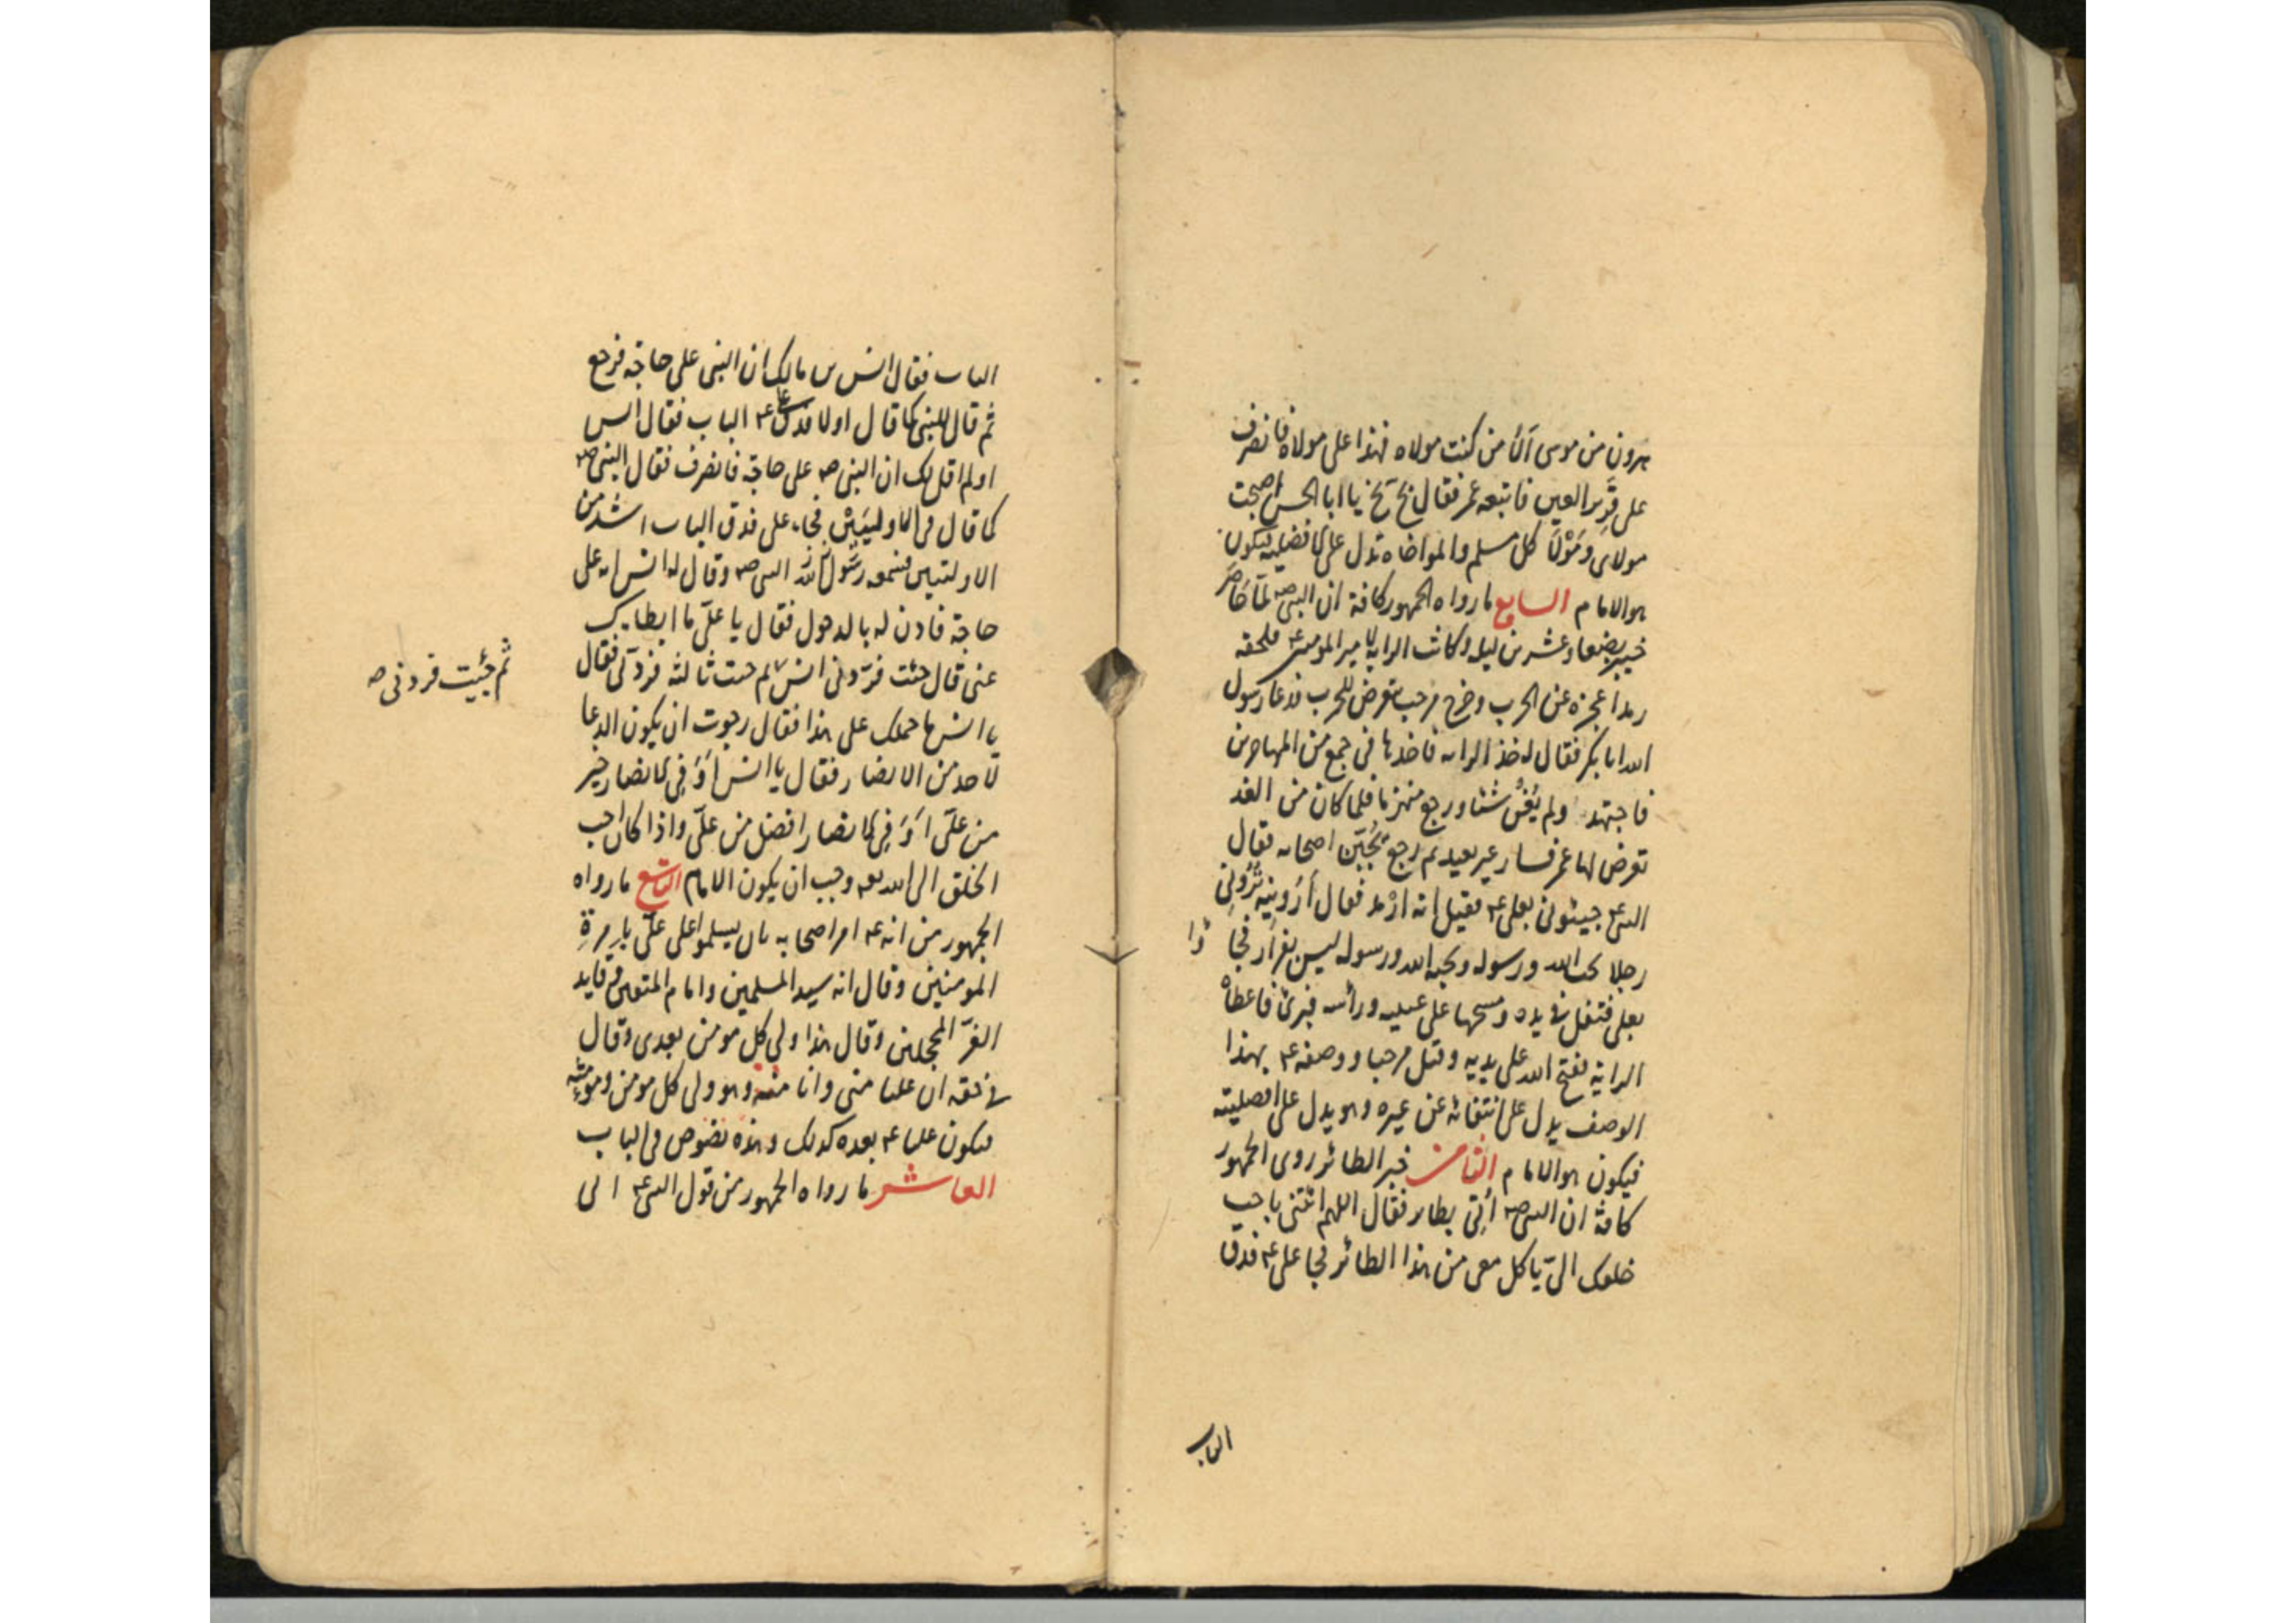 هرون من موسى الا من كنت مولاه فهذا على مولاه فانصرف
على قرير العين فاتبعه عمر فقال بخ بخ يا ابا الحسن اصبحت
مولاى ومولا كل مسلم والمواخاه تدل على الافضلية فيكون
هو الامام السابع ما رواه الجمهور كافة ان النبى صم لما حاصر
خيبر بضعا وعشرين ليلة وكانت الراية لامير المومنين ع فلحقه
رمدا عجزه عن الحرب وخرج مرحب يتعرض للحرب فدعا رسول
الله ابا بكر فقال له خذ الراية فاخذها فى جمع من المهاجرين
فاجتهد ولم يغن شيئا ورجع منهزما فلما كان من الغد
تعرض لها عمر فسار غير بعيد ثم رجع يجبن اصحابه فقال
النبى ع جيئونى بعلى ع فقيل انه ارمد فقال ارونيه ترونى
رجلا يحب الله ورسوله ويحبه الله ورسوله ليس بفرار فجا
ؤا
بعلى فتفل فى يده ومسحها على عينيه ورأسه فبرئ فاعطاه
الراية ففتح الله على يديه وقتل مرحبا ووصفه ع بهذا
الوصف يدل على انتفائه عن غيره وهو يدل على افضليته
فيكون هو الامام الثامن خبر الطائر روى الجمهور
كافة ان النبى صم أتى بطاير فقال اللهم ائتنى باحب
خلقك الىّ ياكل معى من هذا الطائر فجا على ع فدق
الباب
الباب فقال انس بن مالك ان النبى على حاجة فرجع
ثم قال النبى كما قال اولا فدق على ع الباب فقال انس
اولم اقل لك ان النبى صم على حاجة فانصرف فقال النبى صم
كما قال فى الاوليين فجاء على فدق الباب اشد من
الاوليتين فسمعه رسول الله النبى صم وقال له انس انه على
حاجة فاذن له بالدخول فقال يا علىّ ما ابطا بك
عنى قال جئت فردنى انس ثم جئت ثالثة فردنى فقال
ثم جئيت فردنى صم
يا انس ما حملك على هذا فقال رجوت ان يكون الدعا
لاحد من الانصار فقال يا انس أوَ فى الانصار خير
من علىّ أوَ فى الانصار افضل من علىّ واذا كان احب
الخلق الى الله تعه وجب ان يكون الامام التاسع ما رواه
الجمهور من انه ع امر اصحابه بان يسلموا على علىّ بامرة
المومنين وقال انه سيد المسلمين وامام المتقين وقايد
الغرّ المحجلين وقال هذا ولى كل مومن بعدى وقال
فى حقه ان عليا منى وانا منه وهو ولى كل مومن ومومنة
فيكون عليا ع بعده كذلك وهذه نصوص فى الباب
العاشر ما رواه الجمهور من قول النبى ع انى